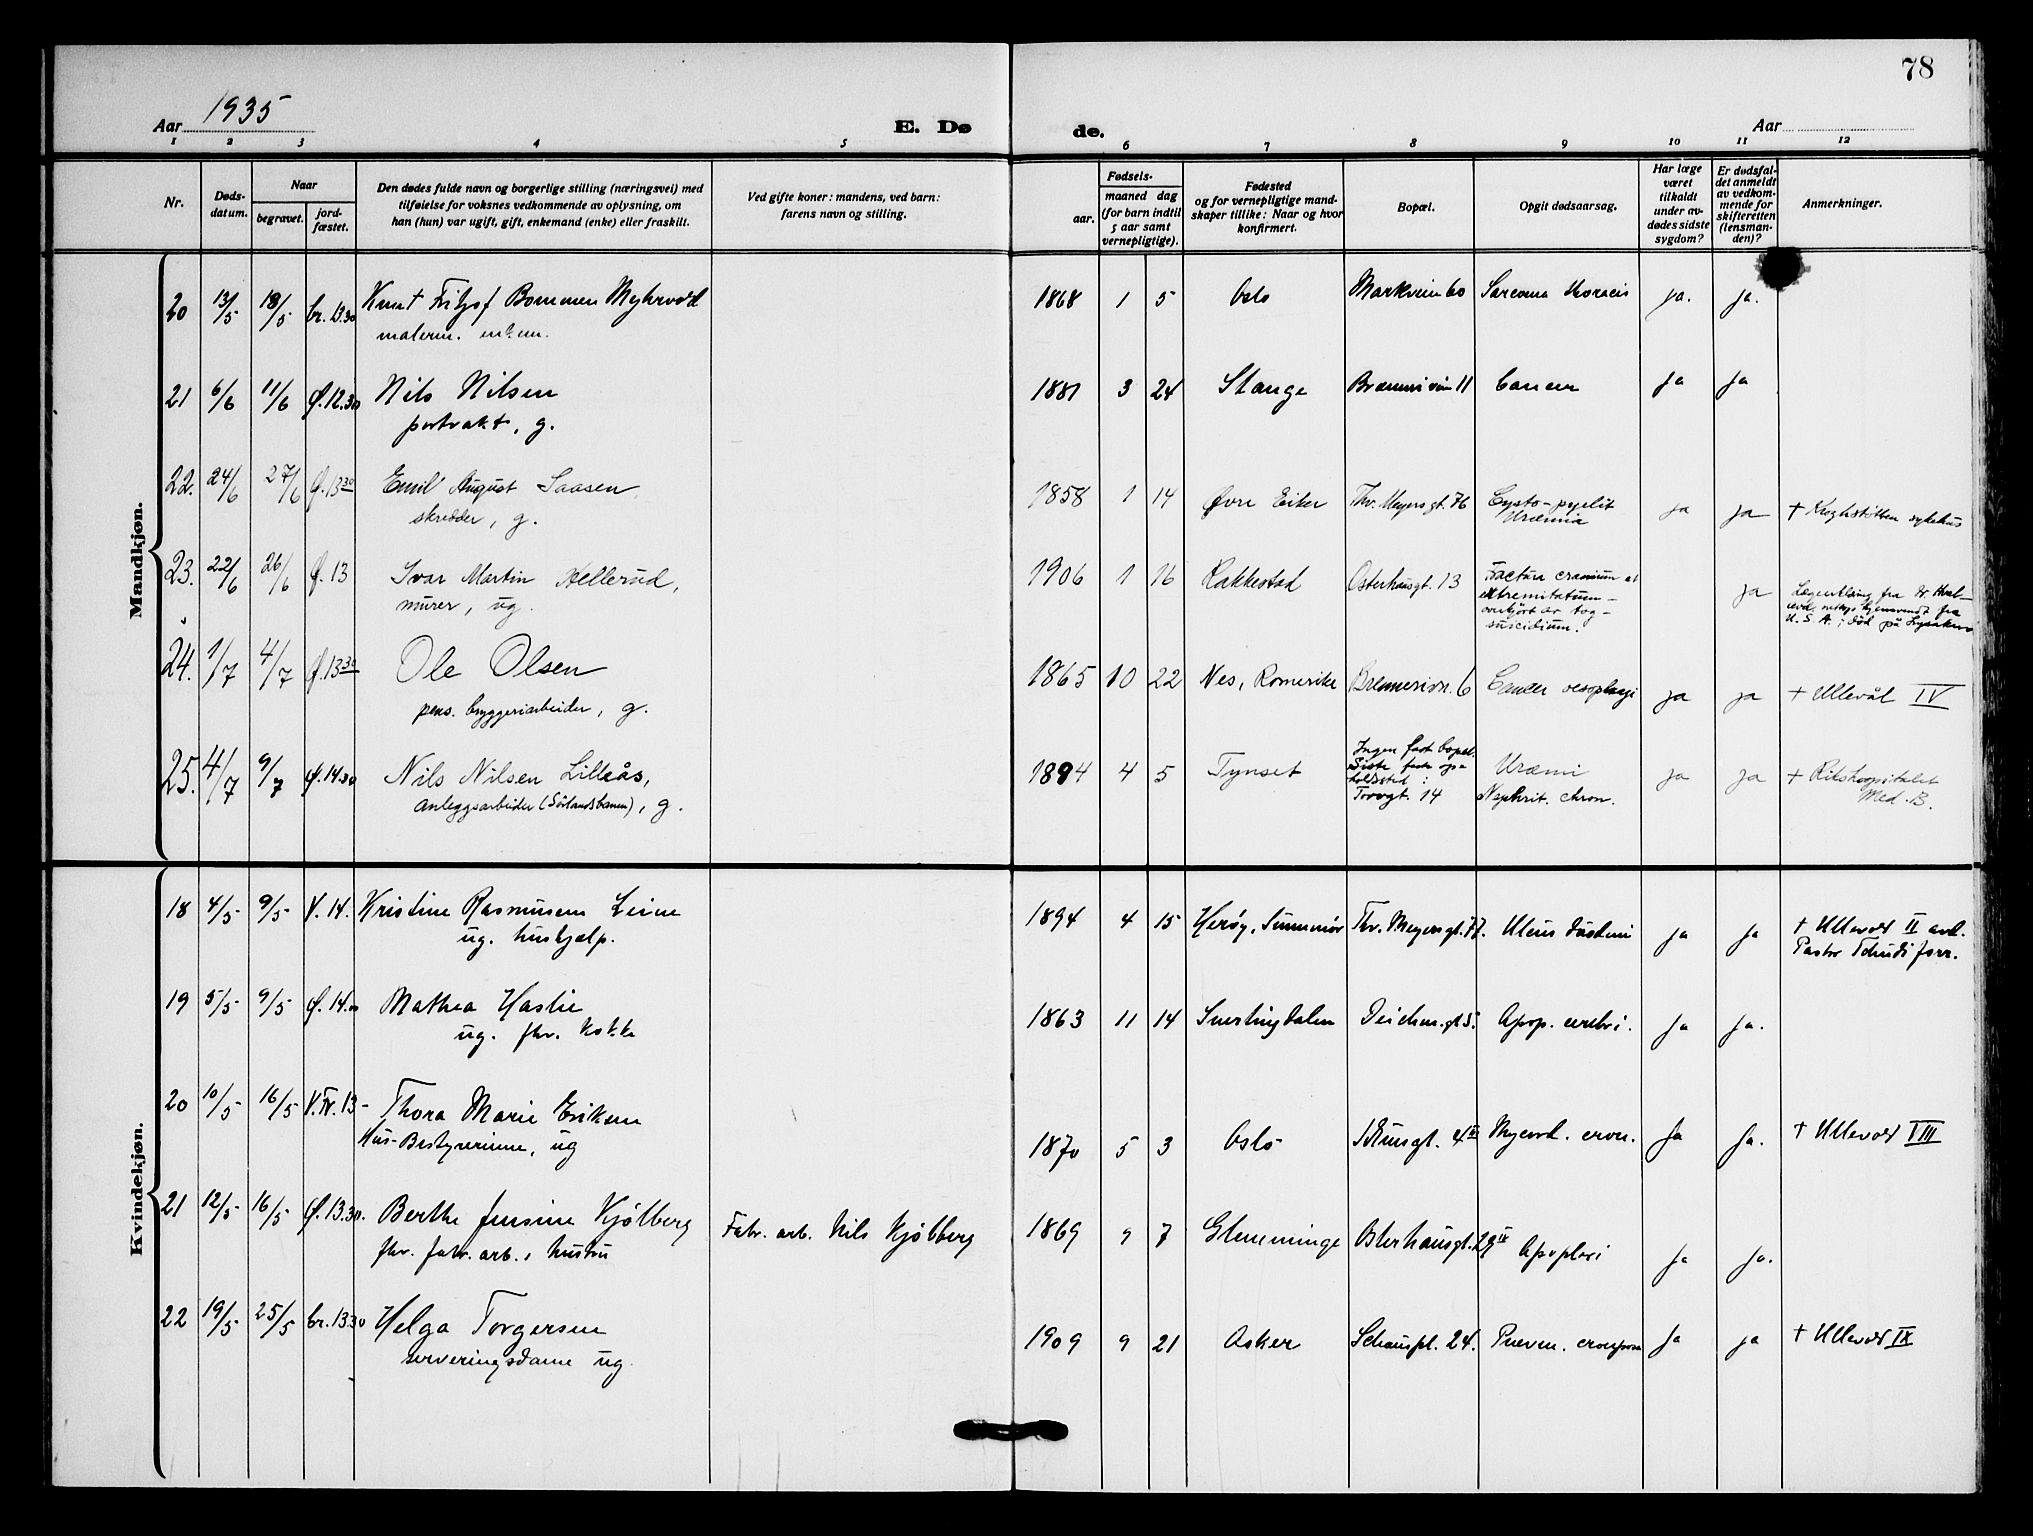 78
Aar 1935
E. Dø
de.
Aar
1 2 3 4 5 6 7 8 9 10 11 12
Nr.
Døds-
datum.
Naar
begravet.
jord-
fæstet.
Den dødes fulde navn og borgerlige stilling (næringsvei) med
tilføielse for voksnes vedkommende av oplysning, om
han (hun) var ugift, gift, enkemand (enke) eller fraskilt.
Ved gifte koner: mandens, ved barn:
farens navn og stilling.
Fødsels-
aar.
maaned dag
(for barn indtil
5 aar samt
vernepligtige).
Fødested
og for vernepligtige mand-
skaper tillike: Naar og hvor
konfirmert.
Bopæl.
Opgit dødsaarsag.
Har læge
været
tilkaldt
under av-
dødes sidste
sygdom?
Er dødsfal-
det anmeldt
av vedkom-
mende for
skifteretten
(lensman-
den)?
Anmerkninger.
Mandkjøn.
20 13/5 18/5 br. 13.30 Knut Fritjof Bommen Myhrvold 1868 1 5 Oslo Markveien 60 Sarcoma thoracis ja. ja.
malerm. enkem.
21 6/6 11/6 Ø. 12.30 Nils Nilsen 1881 3 24 Stange 11 Cancer ja ja
portvakt, g.
22. 24/6 27/6 Ø. 13 30 Emil August Saasen 1858 1 14 Øvre Eiker Thv. Meyersgt. 76 Cysto-pyelit ja ja † Krohstøtten sykehus
skredder, g. Uræmia
23. 22/6 26/6 Ø. 13 Ivar Martin Hellerud, 1906 1 16 Rakkestad Osterhausgt. 13 Fractura cranium et ja
murer, ug. extremitatum —
overkjørt av tog —
suicidium.
fra
U. S. A.; død på Lysaker
24. 1/7 4/7 Ø. 13 30 Ole Olsen 1865 10 22 Nes, Romerike Brenneriv. 6 Cancer oesophagi ja ja † Ullevål IV
pens. bryggeriarbeider, g.
25. 4/7 9/7 Ø. 14.30 Nils Nilsen Lilleås, 1894 4 5 Tynset Ingen fast bopel. Uræmi ja ja † Rikshospitalet
anleggsarbeider (Sørlandsbanen), g. Siste faste op-
holdssted:
Torvgt. 14 Nephrit. chron. Med. B.
Kvindekjøn.
18 4/5 9/5 V. 14. Kristine Rasmussen Leine 1894 4 15 Herøy, Sunnmør Thv. Meyersgt. 77. Ulcus duodeni ja ja † Ullevål II avd.
ug. hushjelp. Pastor Tchudi forr.
19 5/5 9/5 Ø. 14.00 Mathea Haslie 1863 11 14 Snertingdalen Deichm. gt 5. Apop. cerebri. ja ja.
ug. fhv. kokke
20 10/5 16/5 V. Fr. 13 - Thora Marie Eriksen 1870 5 3 Oslo 4 II Myocard. cron. ja ja. † Ullevål VIII
Hus-Bestyrerinne, ug
21 12/5 16/5 Ø. 13.30. Berthe Jensine Kjølberg Fabr. arb. Nils Kjølberg 1869 9 7 Glemminge Osterhausgt. 29 IV Apoplexi ja ja.
fhv. fabr. arb., hustru
22 19/5 25/5 br. 13.30 Helga Torgersen 1909 9 21 Asker Schouspl. 24. Pneum. crouposa ja ja † Ullevål IX
serveringsdame ug.